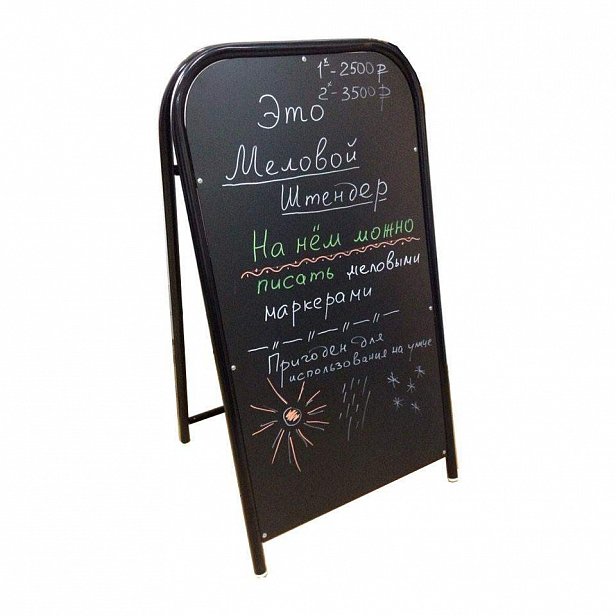 1х-2500р
2х-3500р
Это
Меловой
Штендер
На нём можно
писать меловыми
маркерами
— 〃 — 〃 — 〃 — 〃 —
Пригоден для
использования на улице